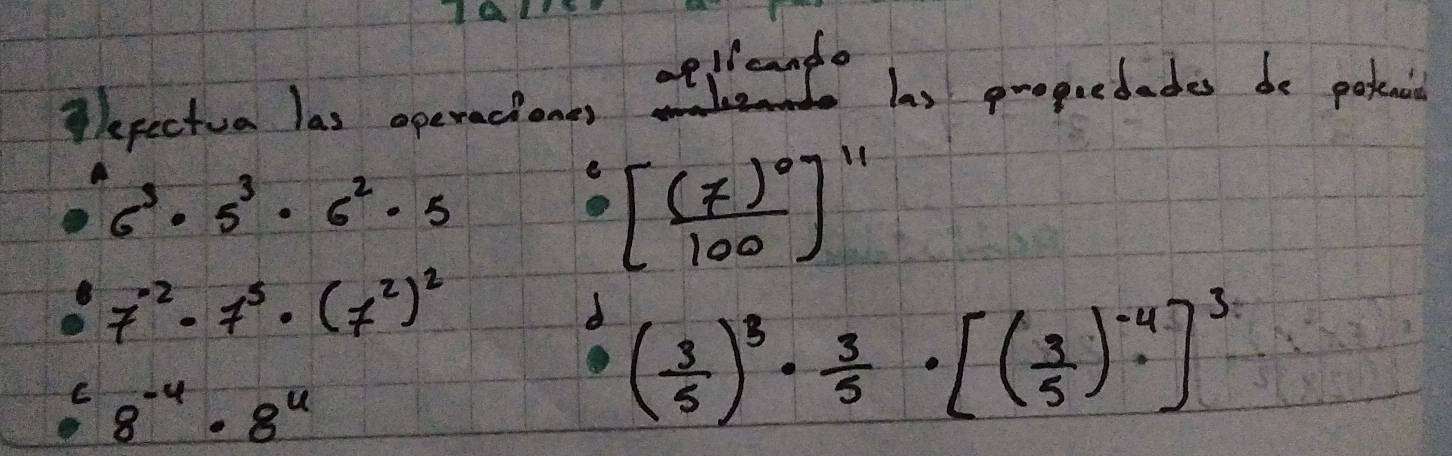 efectua las operaciones aplicando las propiedades de potencia
A 6³ · 5³ · 6² · 5
B 7⁻² · 7⁵ · (7²)²
C 8⁻⁴ · 8⁴
e [(7)⁰/100]¹¹
d (3/5)³ · 3/5 · [(3/5)⁻⁴]³